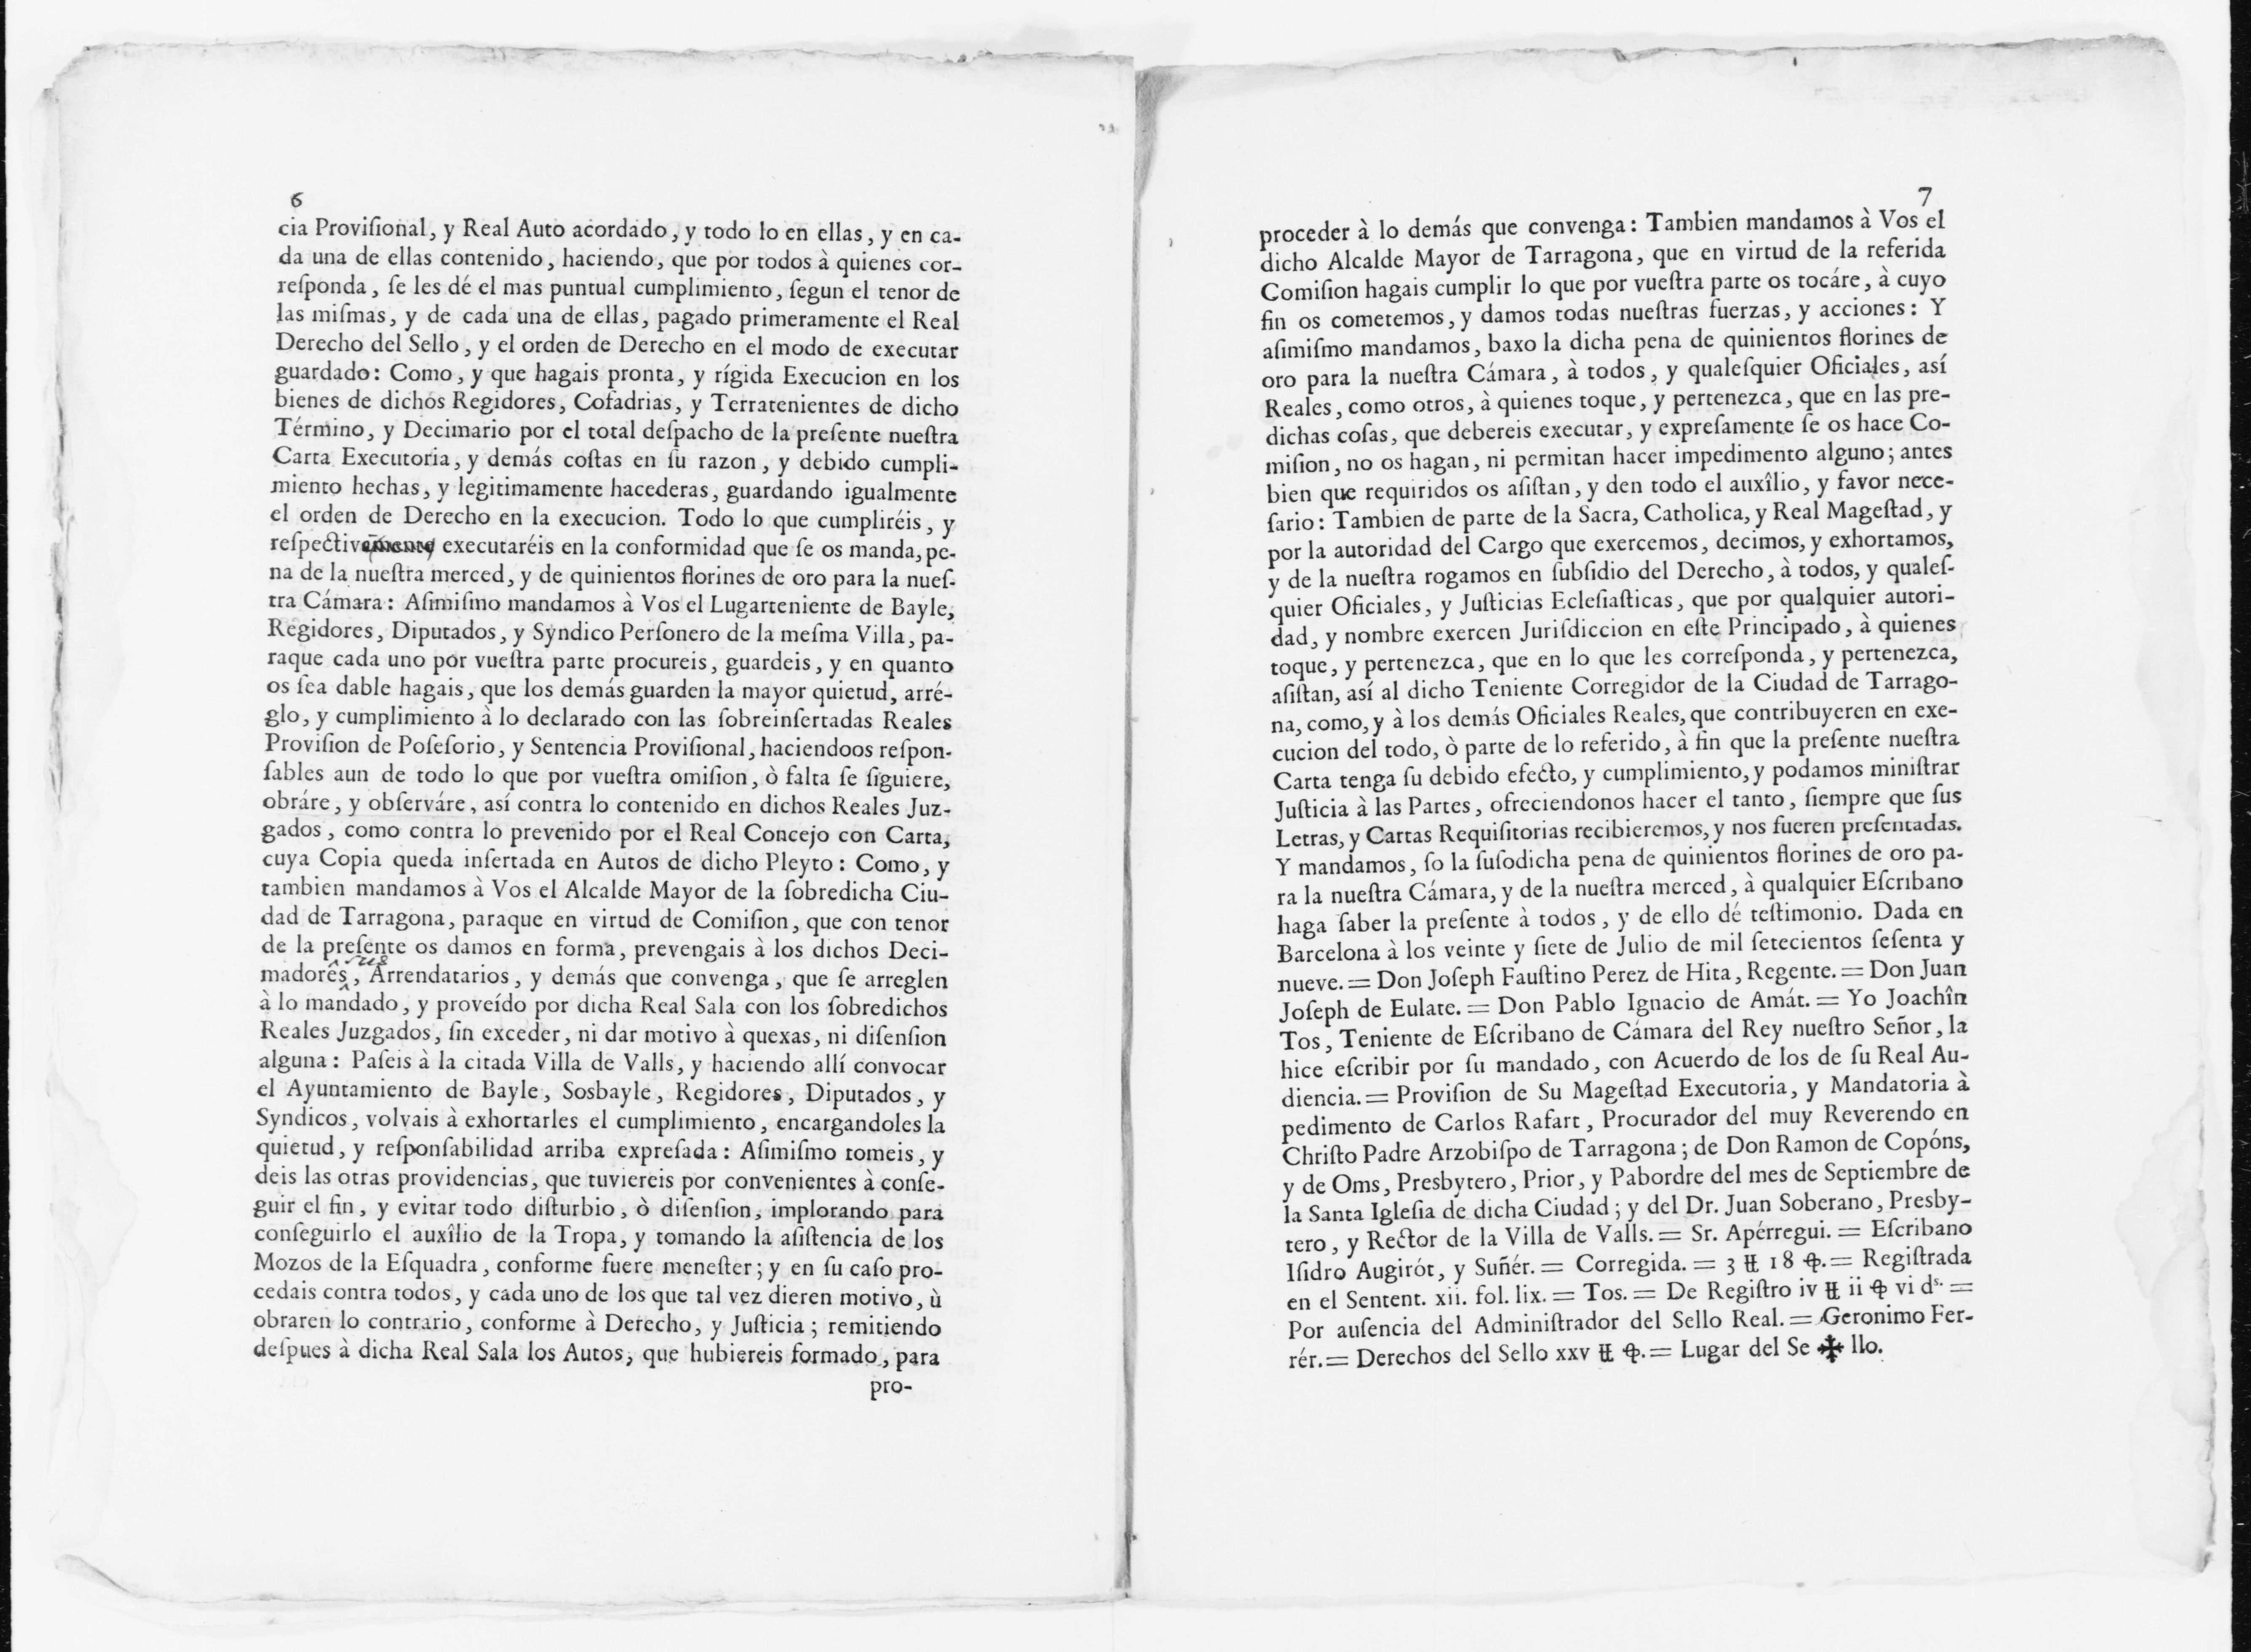 6
cia Proviſional, y Real Auto acordado, y todo lo en ellas, y en ca-
da una de ellas contenido, haciendo, que por todos à quienes cor-
reſponda, ſe les dé el mas puntual cumplimiento, ſegun el tenor de
las miſmas, y de cada una de ellas, pagado primeramente el Real
Derecho del Sello, y el orden de Derecho en el modo de executar
guardado: Como, y que hagais pronta, y rígida Execucion en los
bienes de dichos Regidores, Cofadrias, y Terratenientes de dicho
Término, y Decimario por el total deſpacho de la preſente nueſtra
Carta Executoria, y demás coſtas en ſu razon, y debido cumpli-
miento hechas, y legitimamente hacederas, guardando igualmente
el orden de Derecho en la execucion. Todo lo que cumpliréis, y
reſpectivamente executaréis en la conformidad que ſe os manda, pe-
na de la nueſtra merced, y de quinientos florines de oro para la nueſ-
tra Cámara: Aſimiſmo mandamos à Vos el Lugarteniente de Bayle,
Regidores, Diputados, y Syndico Perſonero de la meſma Villa, pa-
raque cada uno por vueſtra parte procureis, guardeis, y en quanto
os ſea dable hagais, que los demás guarden la mayor quietud, arré-
glo, y cumplimiento à lo declarado con las ſobreinſertadas Reales
Proviſion de Poſeſorio, y Sentencia Proviſional, haciendoos reſpon-
ſables aun de todo lo que por vueſtra omiſion, ò falta ſe ſiguiere,
obráre, y obſerváre, así contra lo contenido en dichos Reales Juz-
gados, como contra lo prevenido por el Real Concejo con Carta,
cuya Copia queda inſertada en Autos de dicho Pleyto: Como, y
tambien mandamos à Vos el Alcalde Mayor de la ſobredicha Ciu-
dad de Tarragona, paraque en virtud de Comiſion, que con tenor
de la preſente os damos en forma, prevengais à los dichos Deci-
sus
madores, Arrendatarios, y demás que convenga, que ſe arreglen
à lo mandado, y proveído por dicha Real Sala con los ſobredichos
Reales Juzgados, ſin exceder, ni dar motivo à quexas, ni diſenſion
alguna: Paſeis à la citada Villa de Valls, y haciendo allí convocar
el Ayuntamiento de Bayle, Sosbayle, Regidores, Diputados, y
Syndicos, volvais à exhortarles el cumplimiento, encargandoles la
quietud, y reſponſabilidad arriba expreſada: Aſimiſmo tomeis, y
deis las otras providencias, que tuviereis por convenientes à conſe-
guir el fin, y evitar todo diſturbio, ò diſenſion, implorando para
conſeguirlo el auxîlio de la Tropa, y tomando la aſiſtencia de los
Mozos de la Eſquadra, conforme fuere meneſter; y en ſu caſo pro-
cedais contra todos, y cada uno de los que tal vez dieren motivo, ù
obraren lo contrario, conforme à Derecho, y Juſticia; remitiendo
deſpues à dicha Real Sala los Autos, que hubiereis formado, para
pro-
7
proceder à lo demás que convenga: Tambien mandamos à Vos el
dicho Alcalde Mayor de Tarragona, que en virtud de la referida
Comiſion hagais cumplir lo que por vueſtra parte os tocáre, à cuyo
fin os cometemos, y damos todas nueſtras fuerzas, y acciones: Y
aſimiſmo mandamos, baxo la dicha pena de quinientos florines de
oro para la nueſtra Cámara, à todos, y qualeſquier Oficiales, así
Reales, como otros, à quienes toque, y pertenezca, que en las pre-
dichas coſas, que debereis executar, y expreſamente ſe os hace Co-
miſion, no os hagan, ni permitan hacer impedimento alguno; antes
bien que requiridos os aſiſtan, y den todo el auxîlio, y favor nece-
ſario: Tambien de parte de la Sacra, Catholica, y Real Mageſtad, y
por la autoridad del Cargo que exercemos, decimos, y exhortamos,
y de la nueſtra rogamos en ſubſidio del Derecho, à todos, y qualeſ-
quier Oficiales, y Juſticias Ecleſiaſticas, que por qualquier autori-
dad, y nombre exercen Juriſdiccion en eſte Principado, à quienes
toque, y pertenezca, que en lo que les correſponda, y pertenezca,
aſiſtan, así al dicho Teniente Corregidor de la Ciudad de Tarrago-
na, como, y à los demás Oficiales Reales, que contribuyeren en exe-
cucion del todo, ò parte de lo referido, à fin que la preſente nueſtra
Carta tenga ſu debido efecto, y cumplimiento, y podamos miniſtrar
Juſticia à las Partes, ofreciendonos hacer el tanto, ſiempre que ſus
Letras, y Cartas Requiſitorias recibieremos, y nos fueren preſentadas.
Y mandamos, ſo la ſuſodicha pena de quinientos florines de oro pa-
ra la nueſtra Cámara, y de la nueſtra merced, à qualquier Eſcribano
haga ſaber la preſente à todos, y de ello dé teſtimonio. Dada en
Barcelona à los veinte y ſiete de Julio de mil ſetecientos ſeſenta y
nueve. = Don Joſeph Fauſtino Perez de Hita, Regente. = Don Juan
Joſeph de Eulate. = Don Pablo Ignacio de Amát. = Yo Joachîn
Tos, Teniente de Eſcribano de Cámara del Rey nueſtro Señor, la
hice eſcribir por ſu mandado, con Acuerdo de los de ſu Real Au-
diencia. = Proviſion de Su Mageſtad Executoria, y Mandatoria à
pedimento de Carlos Rafart, Procurador del muy Reverendo en
Chriſto Padre Arzobiſpo de Tarragona; de Don Ramon de Copóns,
y de Oms, Presbytero, Prior, y Pabordre del mes de Septiembre de
la Santa Igleſia de dicha Ciudad; y del Dr. Juan Soberano, Presby-
tero, y Rector de la Villa de Valls. = Sr. Apérregui. = Eſcribano
Iſidro Augirót, y Suñér. = Corregida. = 3 ₶ 18 ꝕ. = Regiſtrada
en el Sentent. xii. fol. lix. = Tos. = De Regiſtro iv ₶ ii ꝕ vi ds. =
Por auſencia del Adminiſtrador del Sello Real. = Geronimo Fer-
rér. = Derechos del Sello xxv ₶ ꝕ. = Lugar del Se ✠ llo.